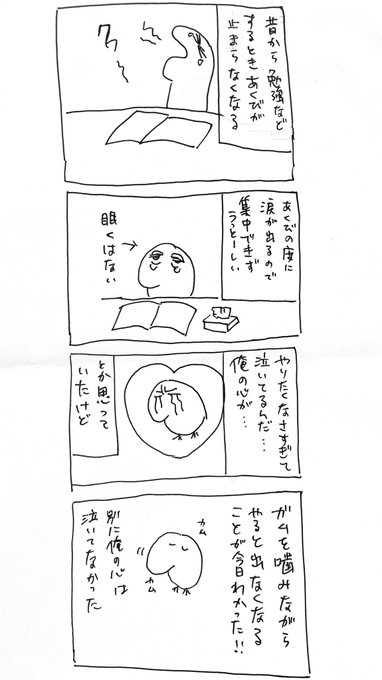 昔から勉強など
するときあくびが
止まらなくなる
あくびの度に
涙が出るので
集中できず
うっとーしい
眠くはない
やりたくなさすぎて
泣いてるんだ…
俺の心が…
とか思って
いたけど
ガムを噛みながら
やると出なくなる
ことが今日わかった!!
カム
カム
カム
別に俺の心は
泣いてなかった